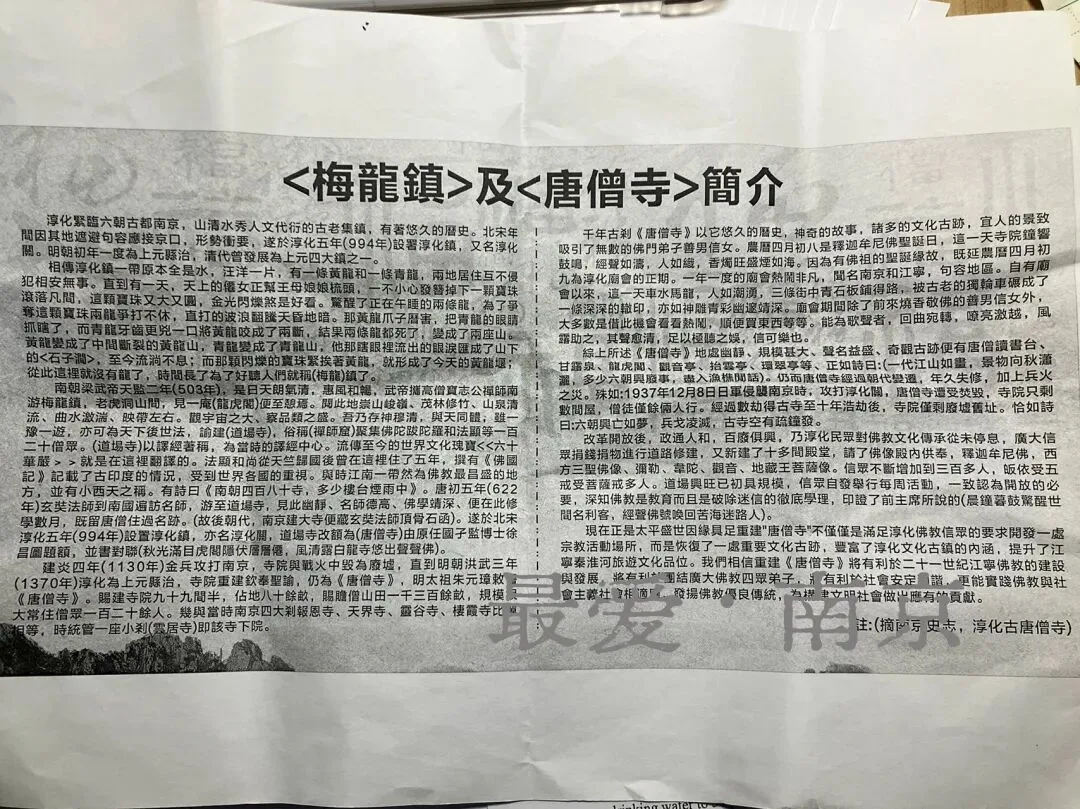 <梅龍鎮>及<唐僧寺>簡介
淳化緊臨六朝古都南京，山清水秀人文代衍的古老集鎮，有著悠久的曆史。北宋年
間因其地遮避句容應接京口，形勢衝要，遂於淳化五年(994年)設署淳化鎮，又名淳化
關。明朝初年一度為上元縣治，清代曾發展為上元四大鎮之一。
相傳淳化鎮一帶原本全是水，汪洋一片，有一條黃龍和一條青龍，兩地居住互不侵
犯相安無事。直到有一天，天上的僊女正幫王母娘娘梳頭，一不小心發簪掉下一顆寶珠
滾落凡間，這顆寶珠又大又圓，金光閃爍煞是好看。驚醒了正在午睡的兩條龍，為了爭
奪這顆寶珠兩龍爭打不休，直打的波浪翻騰天昏地暗。那黃龍爪子曆害，把青龍的眼睛
抓瞎了，而青龍牙齒更兇一口將黃龍咬成了兩斷，結果兩條龍都死了，變成了兩座山。
黃龍變成了中間斷裂的黃龍山，青龍變成了青龍山，他那瞎眼裡流出的眼淚匯成了山下
的<石子澗>，至今流淌不息；而那顆閃爍的寶珠緊挨著黃龍，就形成了今天的黃龍堰；
從此這裡就没有龍了，時間長了為了好聽人們就稱(梅龍)鎮了。
南朝梁武帝天監二年(503年)，是日天朗氣清，惠風和暢，武帝攜高僧寶志公禪師南
游梅龍鎮、老虎洞山間，見一庵(龍虎閣)便至憩癮。閱此地崇山峻嶺、茂林修竹、山泉清
流、曲水激湍、映帶左右。觀宇宙之大、察品類之盛。吾乃存神穆清，與天同體，雖一
豫一遊，亦可為天下後世法，諭建(道場寺)，俗稱(禪師窟)聚集佛陀跋陀羅和法顯等一百
二十僧眾。(道場寺)以譯經著稱，為當時的譯經中心。流傳至今的世界文化瑰寶<<六十
華嚴>>就是在這裡翻譯的。法顯和尚從天竺歸國後曾在這裡住了五年，撰有《佛國
記》記載了古印度的情況，受到世界各國的重視。與時江南一帶然為佛教最昌盛的地
方，並有小西天之稱。有詩曰《南朝四百八十寺，多少樓台煙雨中》。唐初五年(622
年)玄奘法師到南國遍訪名師，游至道場寺，見此幽靜、名師德高、佛學靖深、便在此修
學數月，既留唐僧住過名跡。(故後朝代，南京建大寺便藏玄奘法師頂骨石函)。遂於北宋
淳化五年(994年)設置淳化鎮，亦名淳化關，道場寺改額為(唐僧寺)由原任國子監博士徐
昌圖題額，並書對聯(秋光滿目虎閣隱伏層層僊，風清露白龍寺悠出聲聲佛)。
建炎四年(1130年)金兵攻打南京，寺院與戰火中毀為廢墟，直到明朝洪武三年
(1370年)淳化為上元縣治，寺院重建欽奉聖諭，仍為《唐僧寺》，明太祖朱元璋敕
《唐僧寺》。賜建寺院九十九間半，佔地八十餘畝，賜贍僧山田一千三百餘畝，規模
大常住僧眾一百二十餘人。幾與當時南京四大剎報恩寺、天界寺、靈谷寺、棲霞寺比
相等，時統管一座小剎(雲居寺)即該寺下院。
千年古剎《唐僧寺》以它悠久的曆史，神奇的故事，諸多的文化古跡，宜人的景致
吸引了無數的佛門弟子善男信女。農曆四月初八是釋迦牟尼佛聖誕日，這一天寺院鐘響
鼓鳴，經聲如濤，人如織，香燭旺盛煙如海。因為有佛祖的聖誕緣故，既延農曆四月初
九為淳化廟會的正期。一年一度的廟會熱鬧非凡，聞名南京和江寧，句容地區。自有廟
會以來，這一天車水馬龍，人如潮湧，三條街中青石板鋪得路，被古老的獨輪車碾成了
一條深深的轍印，亦如神雕青彩幽邃靖深。廟會期間除了前來燒香敬佛的善男信女外，
大多數是借此機會看看熱鬧，順便買東西等等。能為歌聲者，回曲宛轉，嘹亮激越，風
露助之，其聲愈清，足以極聽之娛，信可樂也。
綜上所述《唐僧寺》地處幽靜、規模甚大、聲名益盛、奇觀古跡便有唐僧讀書台、
甘露泉、龍虎閣、觀音亭、拾雲亭、環翠亭等、正如詩曰:(一代江山如畫，景物向秋瀟
灑，多少六朝興廢事，盡入漁樵閒話)。仍而唐僧寺經過朝代變遷，年久失修，加上兵火
之災。殊如:1937年12月8日日軍侵襲南京時，攻打淳化關，唐僧寺遭受焚毀，寺院只剩
數間屋，僧徒僅餘倆人行。經過數劫得古寺至十年浩劫後，寺院僅剩廢墟舊址。恰如詩
曰:六朝興亡如夢，兵戈凌滅，古寺空有疏鐘發。
改革開放後，政通人和，百廢俱興，乃淳化民眾對佛教文化傳承從未停息，廣大信
眾捐錢捐物進行道路修建，又新建了十多間殿堂，請了佛像殿內供奉，釋迦牟尼佛，西
方三聖佛像、彌勒、韋陀、觀音、地藏王菩薩像。信眾不斷增加到三百多人，皈依受五
戒受菩薩戒多人。道場興旺已初具規模，信眾自發舉行每周活動，一致認為開放的必
要，深知佛教是教育而且是破除迷信的徹底學理，印證了前主席所說的(晨鐘暮鼓驚醒世
間名利客，經聲佛號喚回苦海迷路人)。
現在正是太平盛世因緣具足重建"唐僧寺"不僅僅是滿足淳化佛教信眾的要求開發一處
宗教活動場所，而是恢復了一處重要文化古跡，豐富了淳化文化古鎮的內涵，提升了江
寧秦淮河旅遊文化品位。我們相信重建《唐僧寺》將有利於二十一世紀江寧佛教的建設
與發展。將有利於團結廣大佛教四眾弟子，將有利於社會安定和諧，更能實踐佛教與社
會主義社會相適應，發揚佛教優良傳統，為構建文明社會做出應有的貢獻。
註:(摘南京史志，淳化古唐僧寺)
最爱·南京